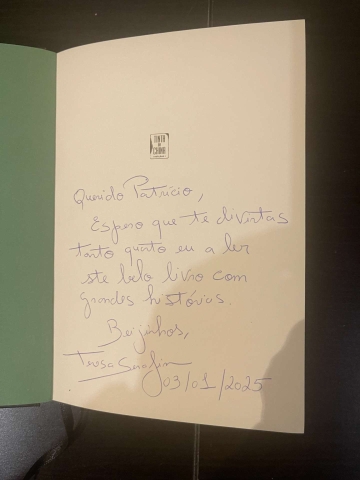 TINTA
DA
CHINA
Querido Patrício,
Espero que te divirtas
tanto quato eu a ler
ste belo livro com
grandes histórias.
Beijinhos,
Teresa Serafim
03/01/2025